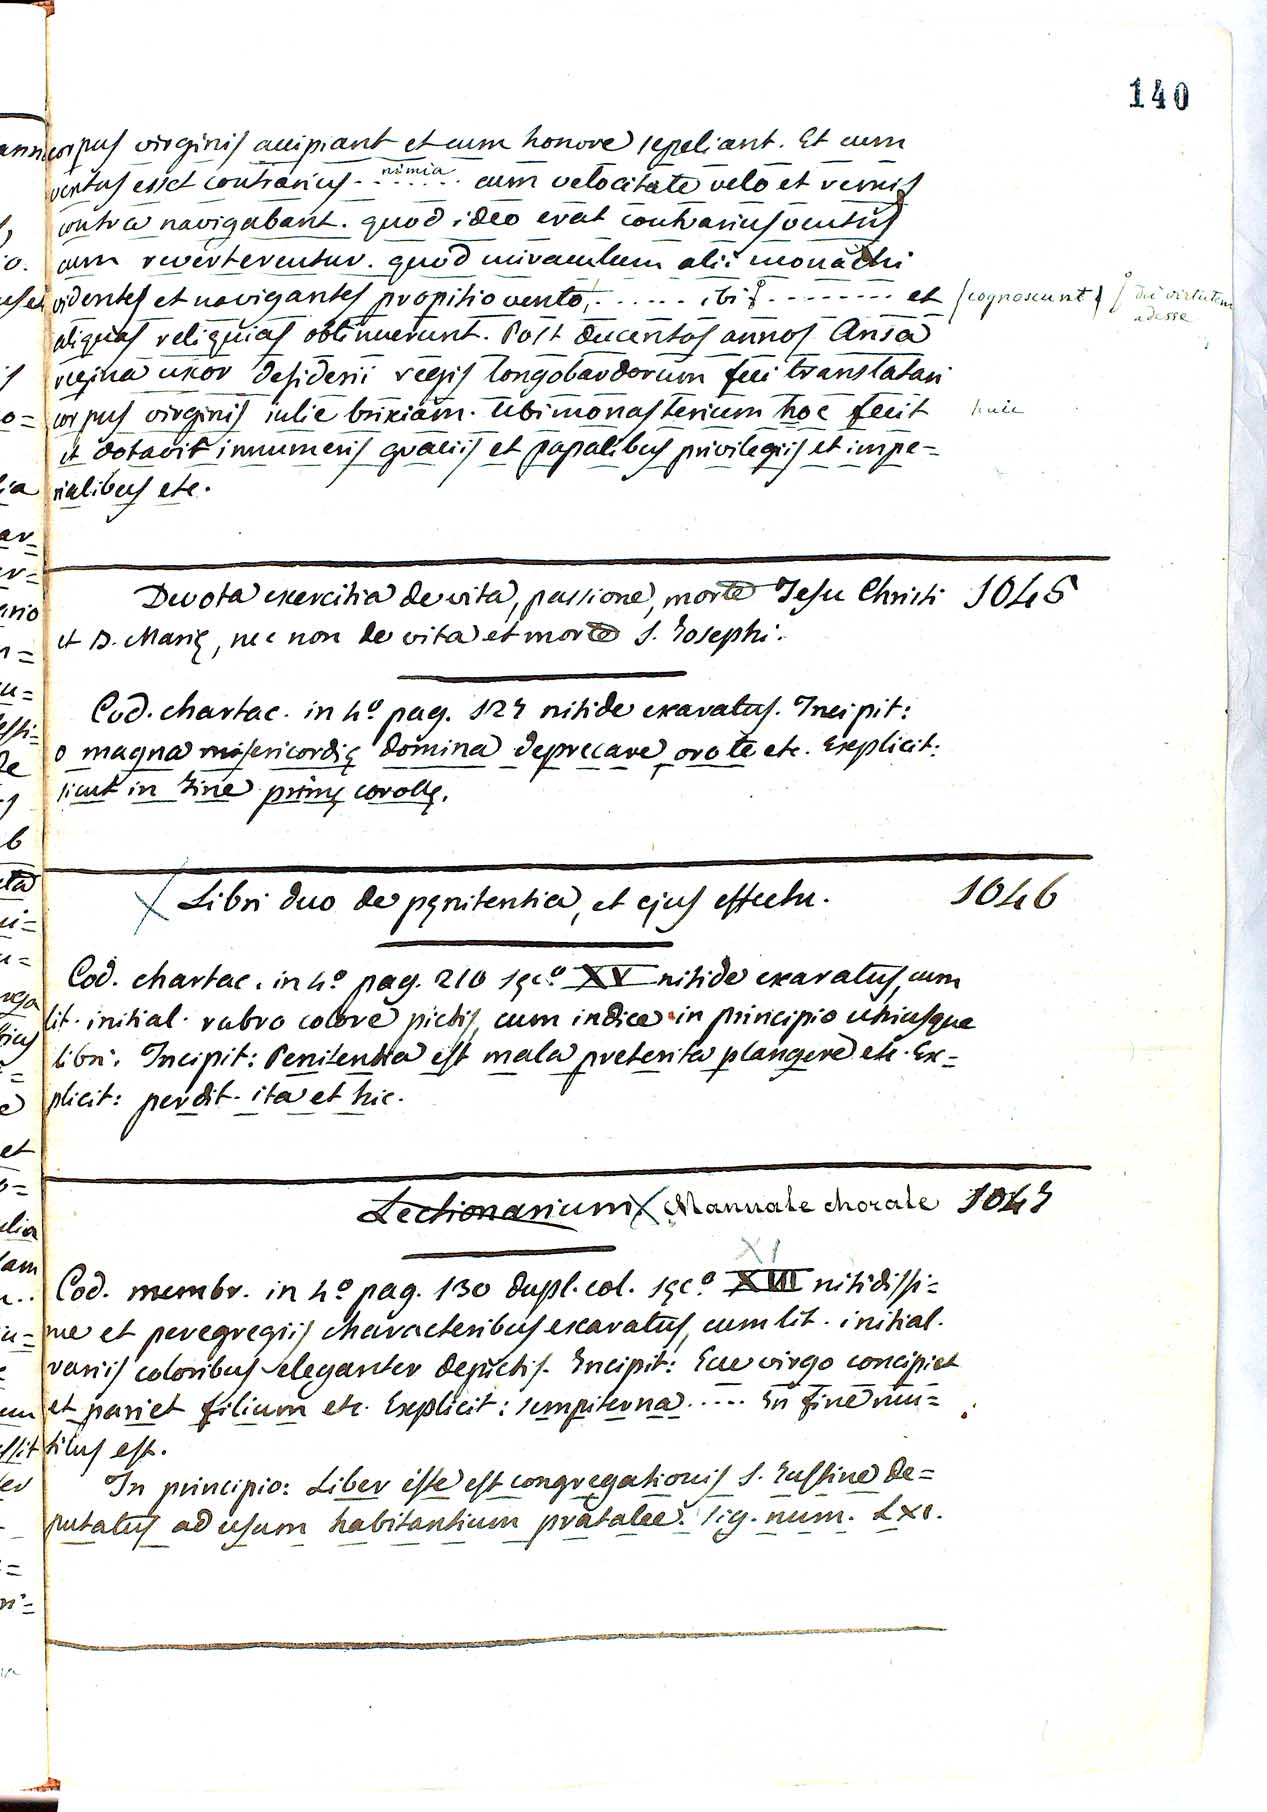 140
corpus virginis accipiant et cum honore sepeliant. Et cum
ventus esset contrarius . . nimia . . cum velocitate velo et remis
contra navigabant. quod ideo erat contrarius ventus
cum reverterentur. quod miraculum alii monachi
videntes et navigantes propitio vento, . . . . . . ibi . . . . . . . . et
cognoscunt
dei virtutem
adesse
aliquas reliquias obtinuerunt. Post ducentos annos Ansa
regina uxor desiderii regis longobardorum feci translatari
corpus virginis iulie brixiam. Ubi monasterium hoc fecit
huic
et dotavit innumeris graciis et papalibus privilegiis et impe=
rialibus etc.
Devota exercitia de vita, passione, morte Jesu Christi 1045
et B. Marię, nec non de vita et morte S. Josephi.
Cod. chartac. in 4º pag. 127 nitide exaratus. Incipit:
o magna misericordię domina deprecare, ora te etc. Explicit:
sicut in fine primę corollę.
Libri duo de pęnitentia, et ejus effectu. 1046
Cod. chartac. in 4º pag. 210 sęcº XV nitide exaratus, cum
lit. initial. rubro colore pictis, cum indice in principio utriusque
libri. Incipit: Penitentia est mala preterita plangere etc. Ex=
plicit: perdit. ita et hic.
Lectionarium Manuale chorale 1047
XI
Cod. membr. in 4º pag. 130 dupl. col. sęcº XIII nitidissi=
me et peregregiis characteribus exaratus, cum lit. initial.
variis coloribus eleganter depictis. Incipit: Ecce virgo concipiet
et pariet filium etc. Explicit: sempiterna . . . . . In fine mu=
tilus est.
In principio: Liber iste est congregationis S. Justine de=
putatus ad usum habitantium pratalee. sig. num. LXI.